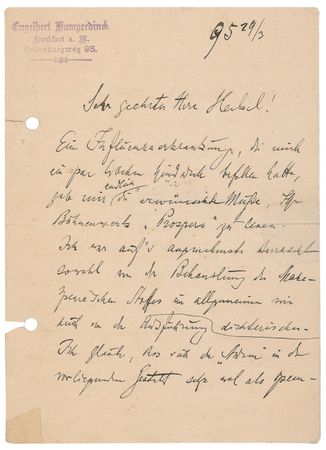 Engelbert Humperdinck
Frankfurt a. M.
Grüneburgweg 95.
95 29/3
Sehr geehrter Herr Henkel!
Ein Influenzaerkrankung, die mich
ein paar Wochen hindurch befallen hatte,
gab mir endlich die erwünschte Muße, Ihr
Bühnenwerk „Prospero" zu lesen.
Ich war auf's angenehmste überrascht
sowohl von der Behandlung des Shake-
speare'schen Stoffes im allgemeinen wie
auch von der Ausführung dichterischen.
Ich glaube, das sich die in der
vorliegenden Gestalt sehr wol als